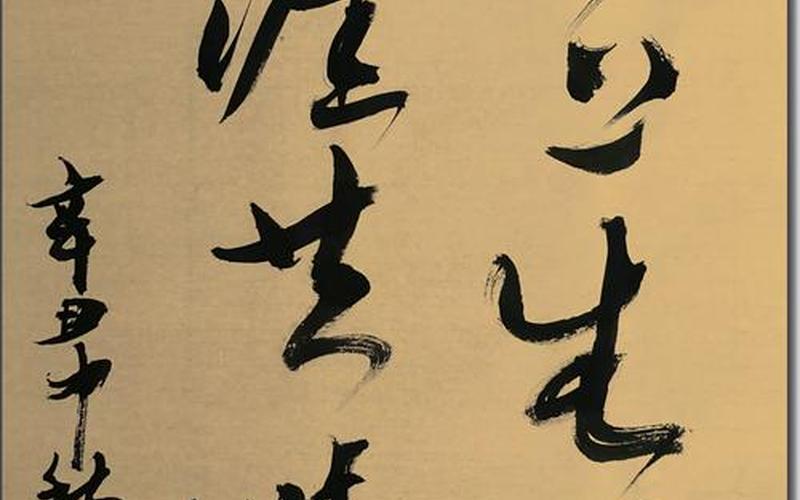 上生
涯共
辛丑中秋